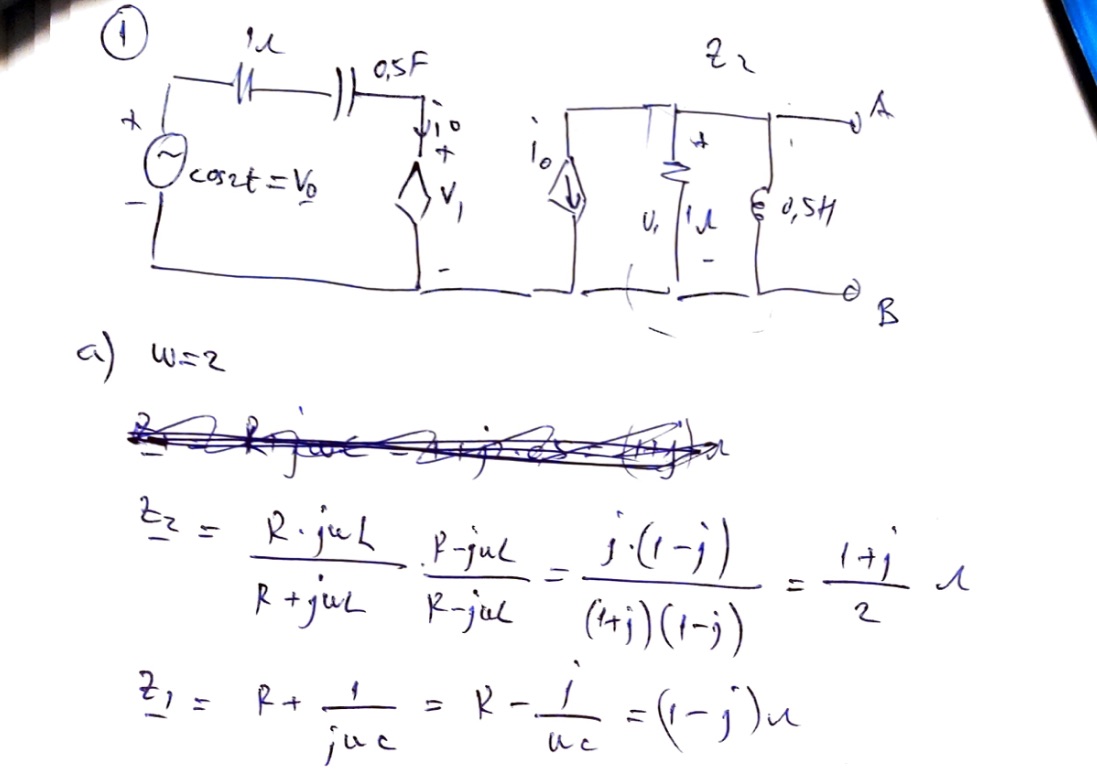 ①
1Ω 0,5F Z2
+ i0 + i0 + A
cos2t = V0 V1 V1 1Ω 0,5H
- - - B
a) w=2
Z2 = R·jwL / R+jwL · R-jwL / R-jwL = j·(1-j) / (1+j)(1-j) = 1+j / 2 Ω
Z1 = R + 1 / jwc = R - j / wc = (1-j)Ω